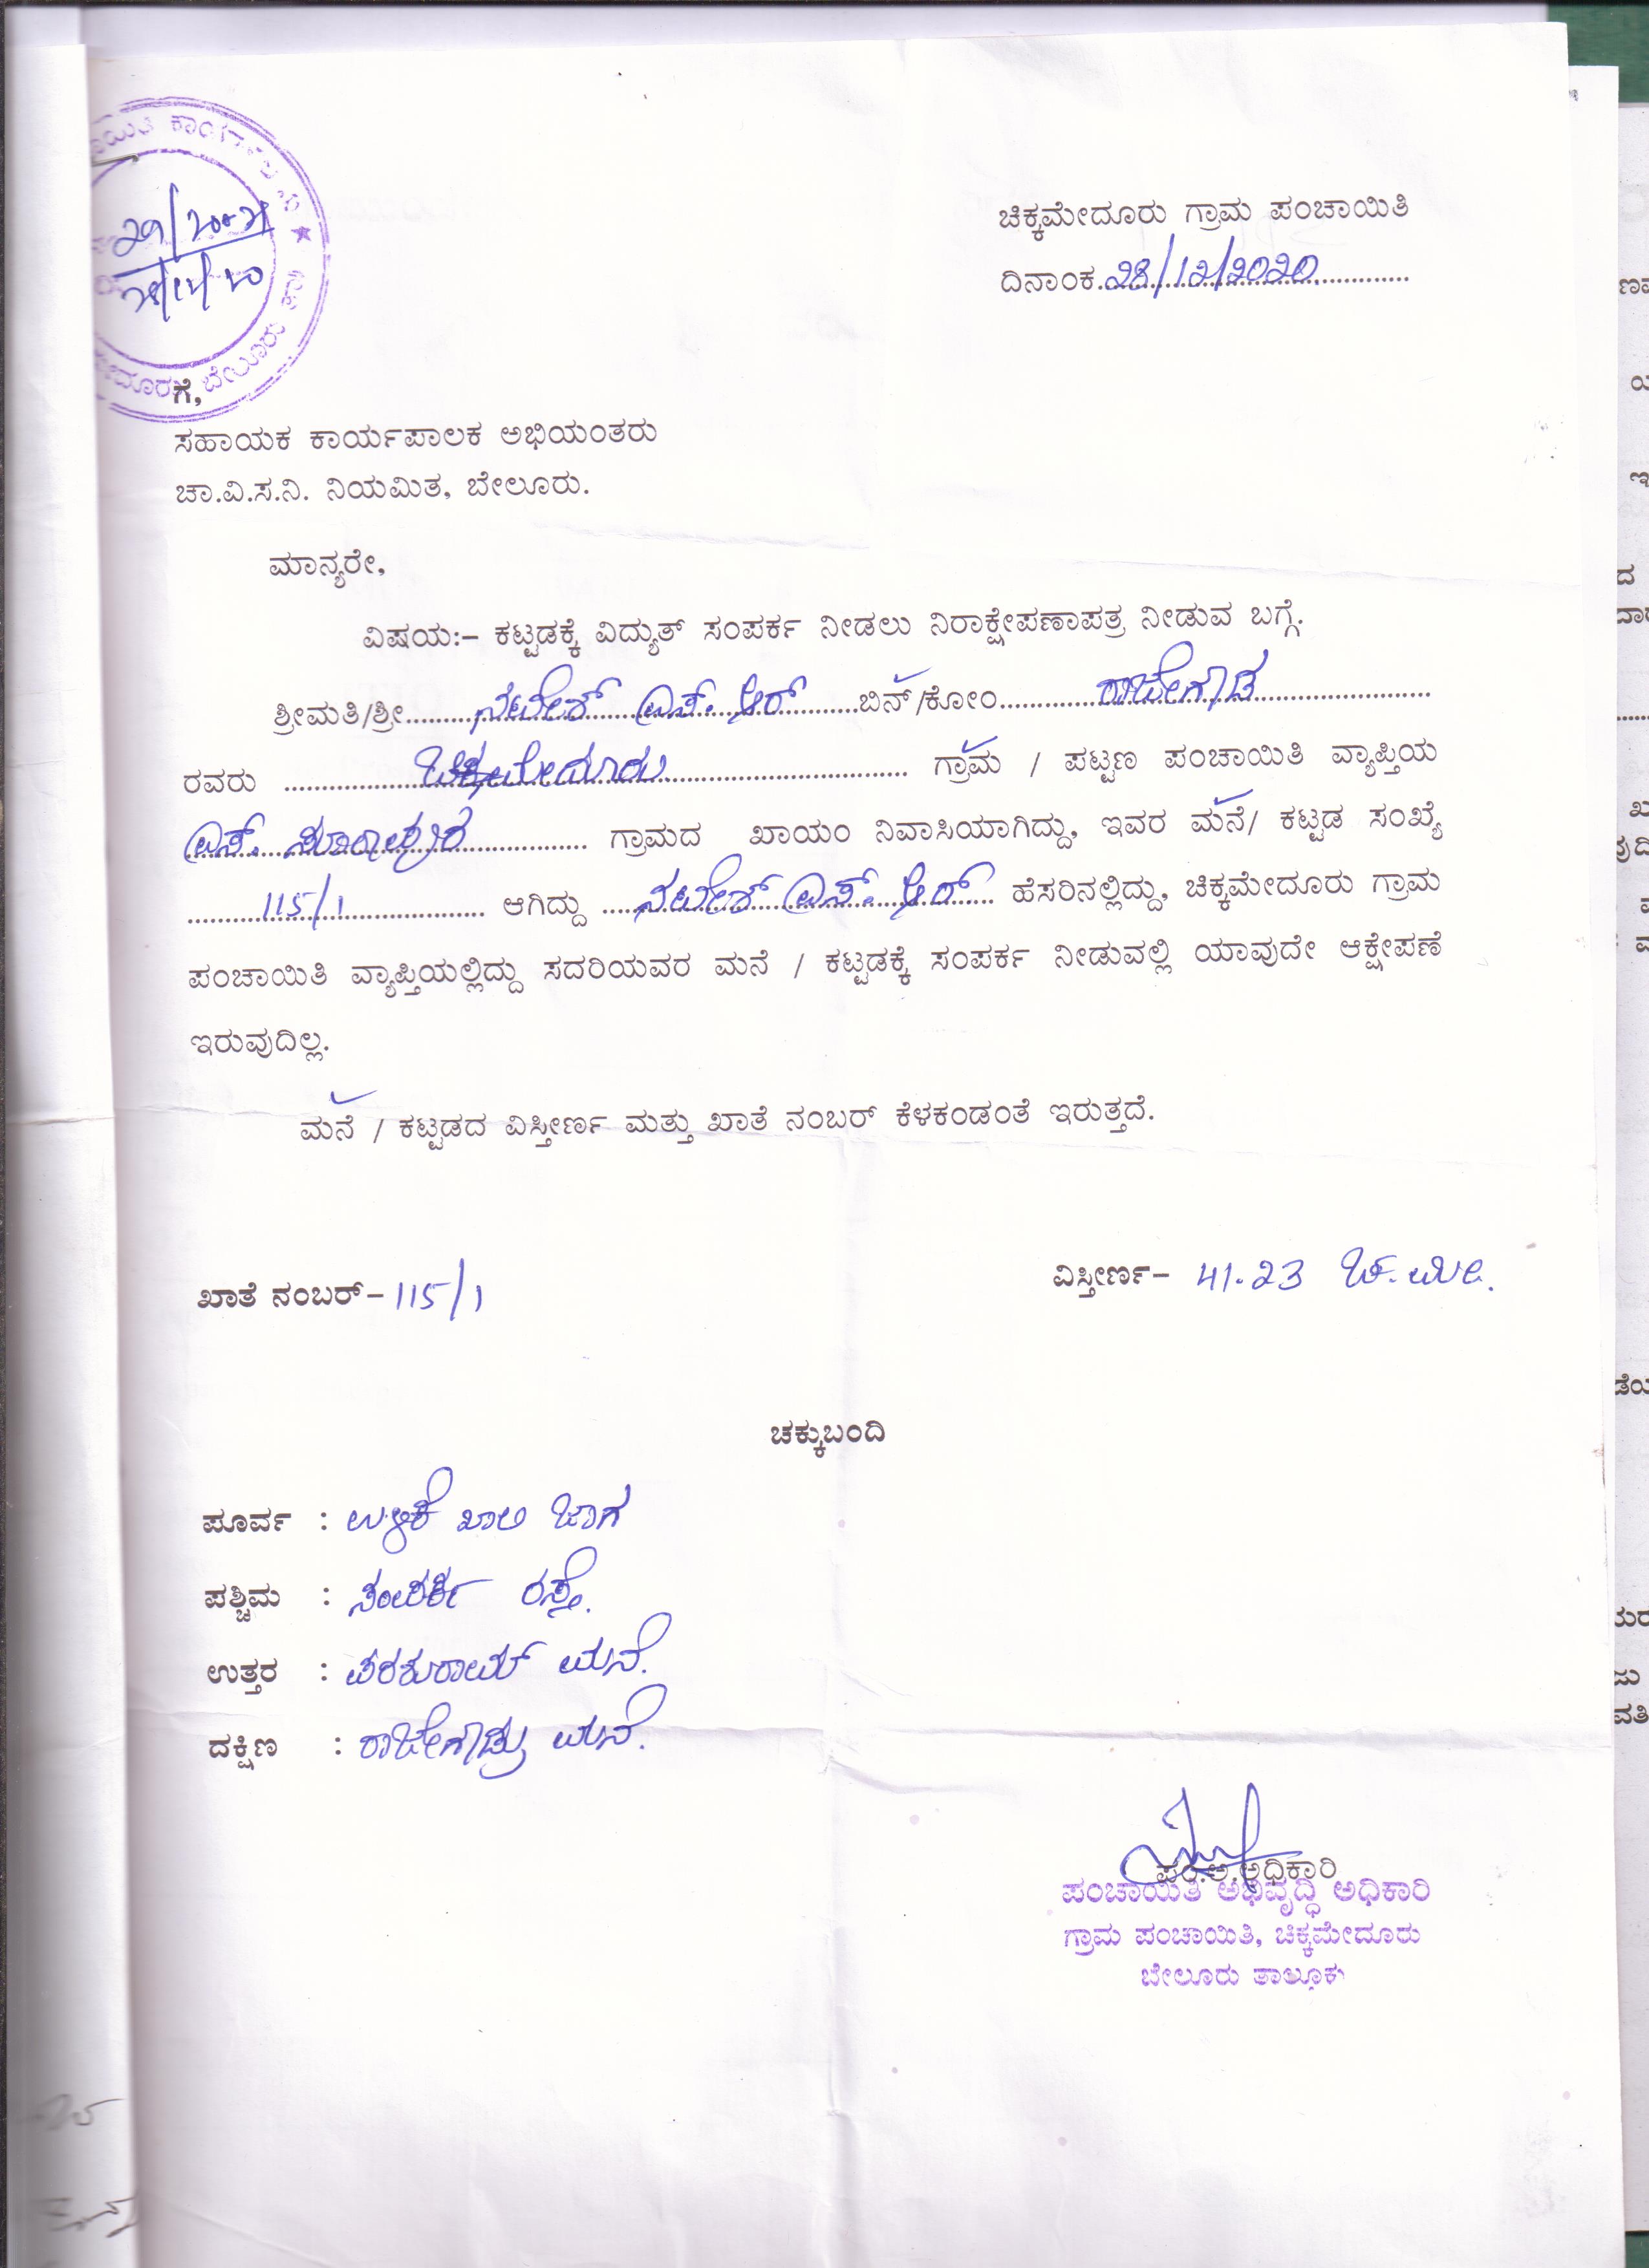 ಚಿಕ್ಕಮೇದೂರು ಗ್ರಾಮ ಪಂಚಾಯಿತಿ
ದಿನಾಂಕ.28/12/2020
ಗೆ,
ಸಹಾಯಕ ಕಾರ್ಯಪಾಲಕ ಅಭಿಯಂತರು
ಚಾ.ವಿ.ಸ.ನಿ. ನಿಯಮಿತ, ಬೇಲೂರು.
ಮಾನ್ಯರೇ,
ವಿಷಯ:– ಕಟ್ಟಡಕ್ಕೆ ವಿದ್ಯುತ್ ಸಂಪರ್ಕ ನೀಡಲು ನಿರಾಕ್ಷೇಪಣಾಪತ್ರ ನೀಡುವ ಬಗ್ಗೆ.
ಶ್ರೀಮತಿ/ಶ್ರೀ.......ನಟೇಶ್ ಎಸ್. ಆರ್.......ಬಿನ್/ಕೋಂ.......ರಾಜೇಗೌಡ.......
ರವರು .......ಚಿಕ್ಕಮೇದೂರು....... ಗ್ರಾಮ / ಪಟ್ಟಣ ಪಂಚಾಯಿತಿ ವ್ಯಾಪ್ತಿಯ
ಎಸ್. ಸೂರಾಪುರ....... ಗ್ರಾಮದ ಖಾಯಂ ನಿವಾಸಿಯಾಗಿದ್ದು, ಇವರ ಮನೆ/ ಕಟ್ಟಡ ಸಂಖ್ಯೆ
.......115/1....... ಆಗಿದ್ದು ...ನಟೇಶ್ ಎಸ್. ಆರ್... ಹೆಸರಿನಲ್ಲಿದ್ದು, ಚಿಕ್ಕಮೇದೂರು ಗ್ರಾಮ
ಪಂಚಾಯಿತಿ ವ್ಯಾಪ್ತಿಯಲ್ಲಿದ್ದು ಸದರಿಯವರ ಮನೆ / ಕಟ್ಟಡಕ್ಕೆ ಸಂಪರ್ಕ ನೀಡುವಲ್ಲಿ ಯಾವುದೇ ಆಕ್ಷೇಪಣೆ
ಇರುವುದಿಲ್ಲ.
ಮನೆ / ಕಟ್ಟಡದ ವಿಸ್ತೀರ್ಣ ಮತ್ತು ಖಾತೆ ನಂಬರ್ ಕೆಳಕಂಡಂತೆ ಇರುತ್ತದೆ.
ಖಾತೆ ನಂಬರ್– 115/1
ವಿಸ್ತೀರ್ಣ– 41.23 ಚ.ಮೀ.
ಚಕ್ಕುಬಂದಿ
ಪೂರ್ವ : ಉಳಿಕೆ ಖಾಲಿ ಜಾಗ
ಪಶ್ಚಿಮ : ಸಂಪರ್ಕ ರಸ್ತೆ.
ಉತ್ತರ : ಪರಶುರಾಮ್ ಮನೆ.
ದಕ್ಷಿಣ : ರಾಜೇಗೌಡ್ರು ಮನೆ.
ಪಂ.ಅ.ಅಧಿಕಾರಿ
ಪಂಚಾಯಿತಿ ಅಭಿವೃದ್ಧಿ ಅಧಿಕಾರಿ
ಗ್ರಾಮ ಪಂಚಾಯಿತಿ, ಚಿಕ್ಕಮೇದೂರು
ಬೇಲೂರು ತಾಲ್ಲೂಕು